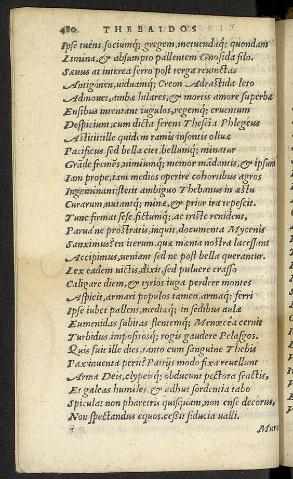 480 THEBAIDOS
Ipse tuens sociumq; gregem, metuendaq; quondam
Limina, & absumpto pallentem Gnosida filo.
Sæuus at interea ferro post terga reuinctas
Antigonen, uiduamq; Creon Adrastida leto
Admouet, ambæ hilares, & mortis amore superbæ
Ensibus intentant iugulos, regemq; cruentum
Despiciunt, cum dicta ferens Theseia Phlegeus
Astitit: ille quidem ramis insontis oliuæ
Pacificus, sed bella ciet, bellumq; minatur
Grāde fremēs, nimiumq; memor mādantis, & ipsum
Iam prope, iam medios operire cohortibus agros
Ingeminans: stetit ambiguo Thebanus in æstu
Curarum, nutantq; minæ, & prior ira tepescit.
Tunc firmat sese, fictumq; ac triste renidens,
Parua ne prostratis, inquit, documenta Mycenis
Sanximus? en iterum, qui mœnia nostra lacessant
Accipimus, ueniant sed ne post bella querantur.
Lex eadem uictis, dixit, sed puluere crasso
Caligare diem, & tyrios iuga perdere montes
Aspicit, armari populos tamen, armaq; ferri
Ipse iubet pallens, mediaq; in sedibus aulæ
Eumenidas subitas flentemq; Menœcea cernit
Turbidus, impositosq; rogis gaudere Pelasgos.
Quis fuit ille dies, tanto cum sanguine Thebis
Pax inuenta perit? Patrijs modo fixa reuellunt
Arma Deis, clypeisq; obducunt pectora fractis,
Et galeas humiles, & adhuc sordentia tabo
Spicula: non pharetris quisquam, non ense decorus,
Non spectandus equo. cessit fiducia ualli.